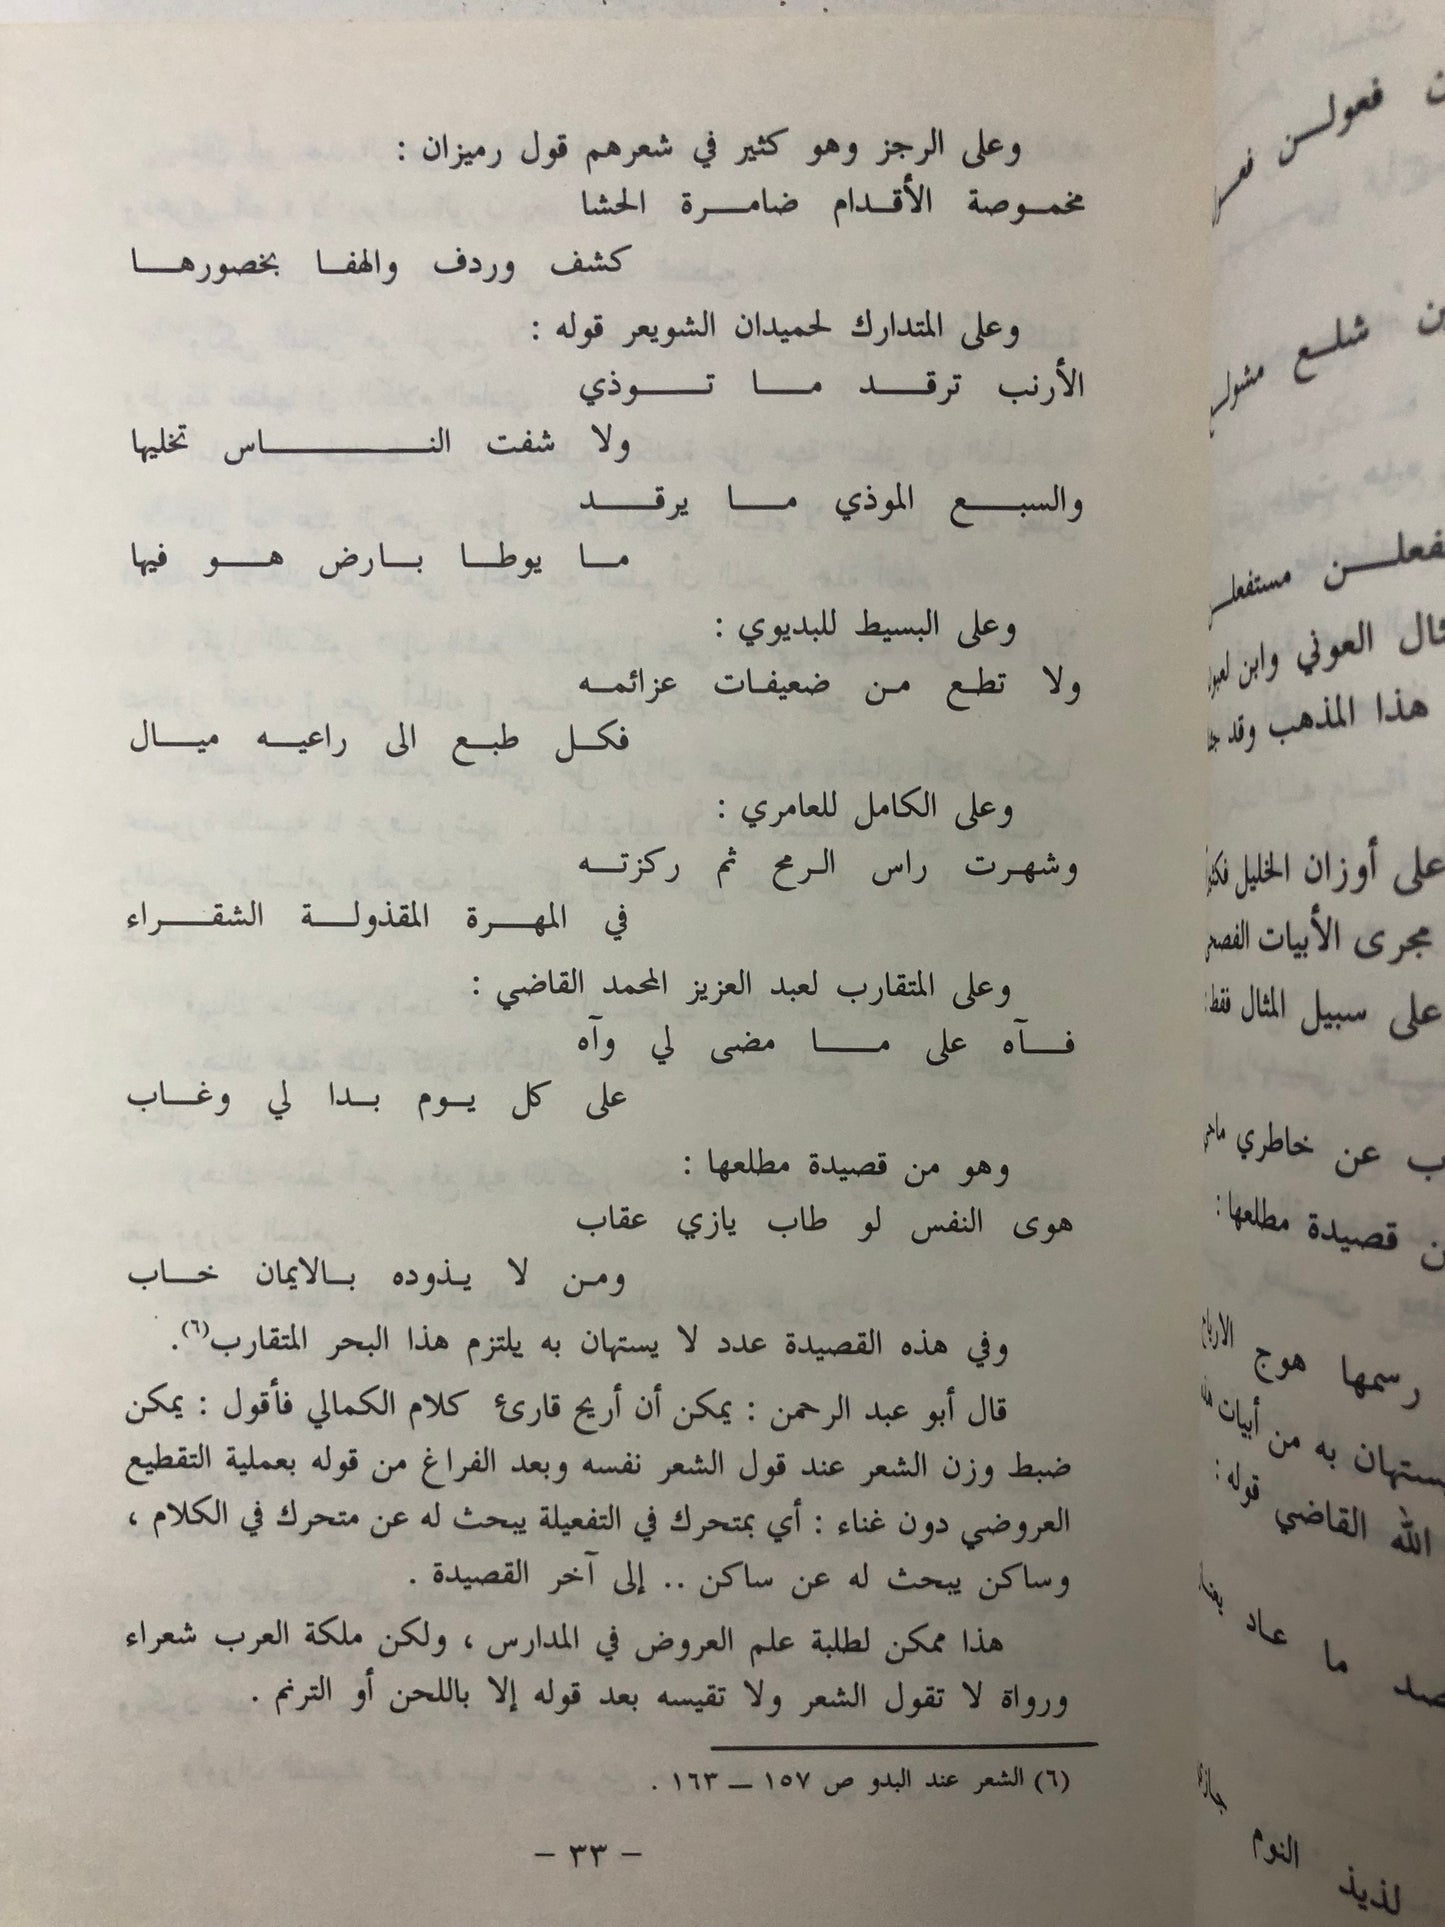 وعلى الرجز وهو كثير في شعرهم قول رميزان :
مخموصة الأقدام ضامرة الحشا
كشف وردف والهفا بخصورها
وعلى المتدارك لحميدان الشويعر قوله :
الأرنب ترقد ما توذي
ولا شفت الناس تخليها
والسبع الموذي ما يرقد
ما يوطا بارض هو فيها
وعلى البسيط للبديوي :
ولا تطع من ضعيفات عزائمه
فكل طبع الى راعيه ميال
وعلى الكامل للعامري :
وشهرت راس الرمح ثم ركزته
في المهرة المقذولة الشقراء
وعلى المتقارب لعبد العزيز المحمد القاضي :
فآه على ما مضى لي وآه
على كل يوم بدا لي وغاب
وهو من قصيدة مطلعها :
هوى النفس لو طاب يازي عقاب
ومن لا يذوده بالايمان خاب
وفي هذه القصيدة عدد لا يستهان به يلتزم هذا البحر المتقارب(٦).
قال أبو عبد الرحمن : يمكن أن أريح قارئ كلام الكمالي فأقول : يمكن
ضبط وزن الشعر عند قول الشعر نفسه وبعد الفراغ من قوله بعملية التقطيع
العروضي دون غناء : أي بمتحرك في التفعيلة يبحث له عن متحرك في الكلام ،
وساكن يبحث له عن ساكن .. إلى آخر القصيدة .
هذا ممكن لطلبة علم العروض في المدارس ، ولكن ملكة العرب شعراء
ورواة لا تقول الشعر ولا تقيسه بعد قوله إلا باللحن أو الترنم .
(٦) الشعر عند البدو ص ١٥٧ – ١٦٣ .
– ٣٣ –
فعولن
شلع
مستفعلن
العوني وابن
هذا المذهب وقد
على أوزان الخليل
مجرى الأبيات
على سبيل المثال فقط
عن خاطري
قصيدة مطلعها :
رسمها هوج
به من أبيات
الله القاضي قوله :
ما عاد
لذيذ النوم